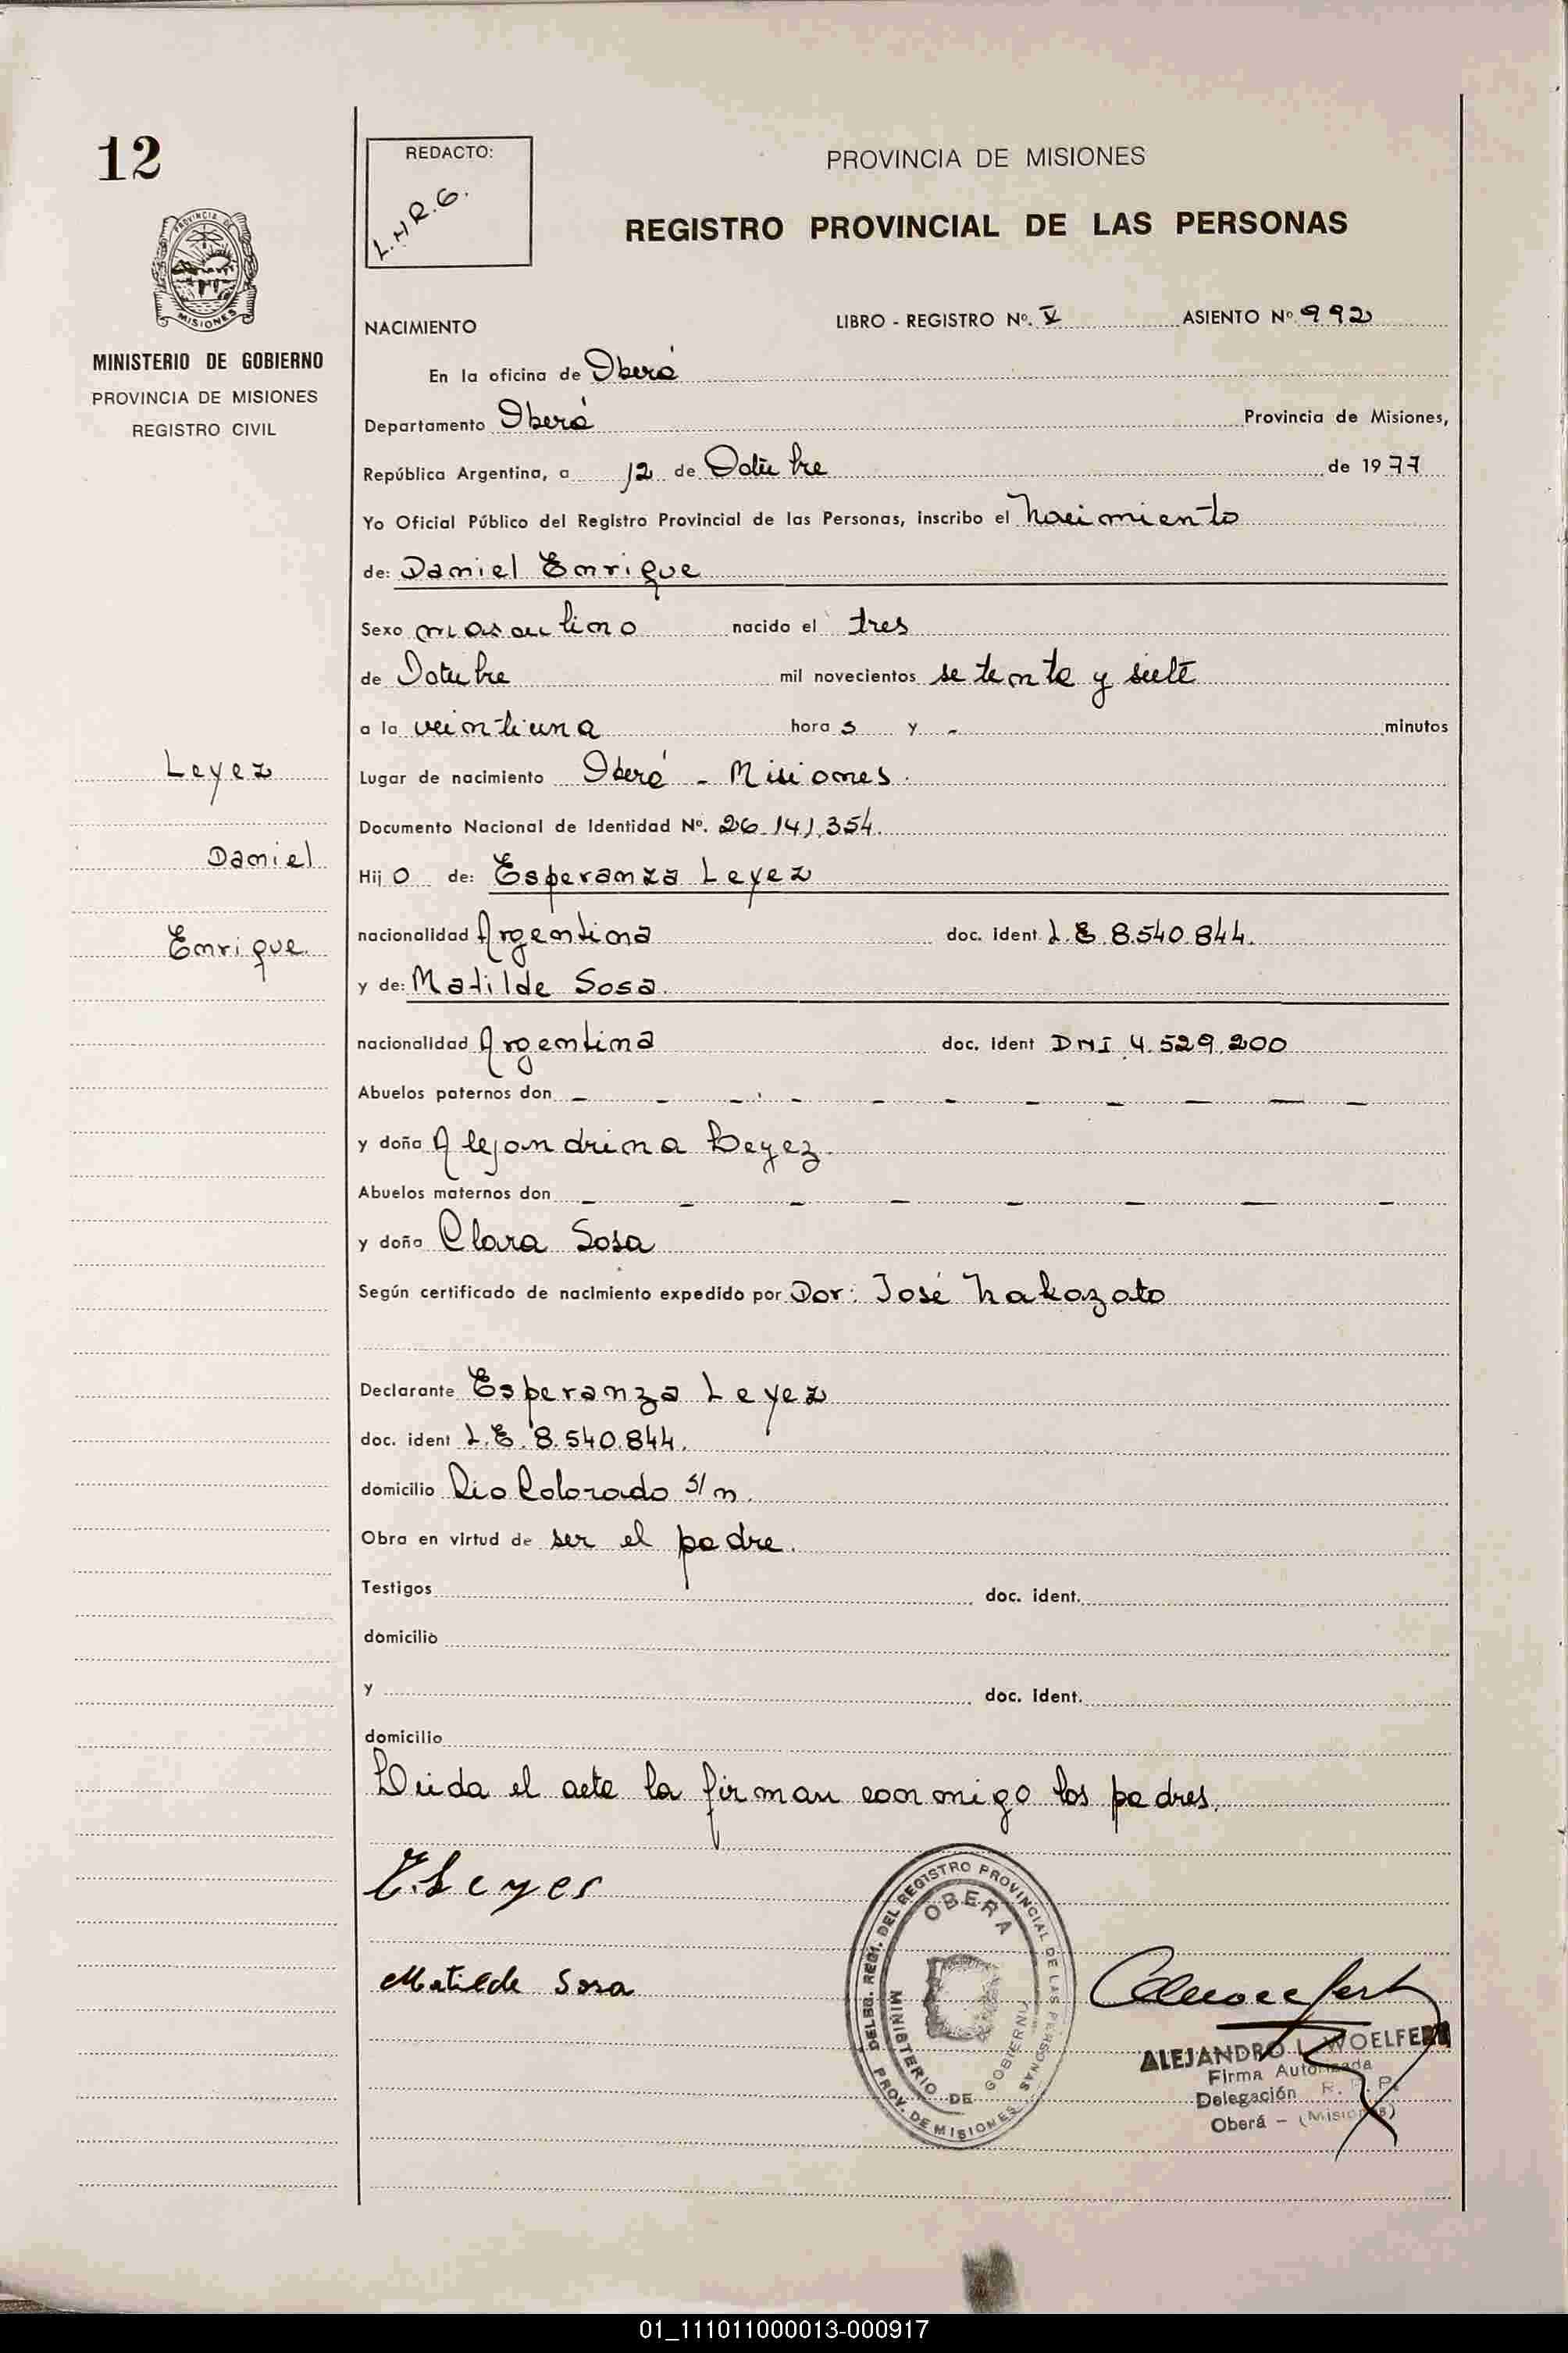 12
REDACTO:
L.H.R.G.
PROVINCIA DE MISIONES
REGISTRO PROVINCIAL DE LAS PERSONAS
PROVINCIA DE
MISIONES
MINISTERIO DE GOBIERNO
PROVINCIA DE MISIONES
REGISTRO CIVIL
NACIMIENTO LIBRO - REGISTRO Nº. V ASIENTO Nº 992
En la oficina de Oberá
Departamento Oberá Provincia de Misiones,
República Argentina, a 12 de Octubre de 1977
Yo Oficial Público del Registro Provincial de las Personas, inscribo el Nacimiento
de: Daniel Enrique
Sexo masculino nacido el tres
de Octubre mil novecientos setenta y siete
a la veintiuna hora s y - minutos
Leyez
Lugar de nacimiento Oberá - Misiones.
Documento Nacional de Identidad Nº. 26.141.354.
Daniel
Hij o de: Esperanza Leyez
Enrique.
nacionalidad Argentina doc. ident L.E. 8.540.844.
y de: Matilde Sosa.
nacionalidad Argentina doc. ident DNI 4.529.200
Abuelos paternos don - - - - - - - - - - -
y doña Alejandrina Leyez.
Abuelos maternos don - - - - - - - -
y doña Clara Sosa
Según certificado de nacimiento expedido por Dor: José Nakazato
Declarante Esperanza Leyez
doc. ident L.E. 8.540.844.
domicilio Rio Colorado s/n.
Obra en virtud de ser el padre.
Testigos doc. ident.
domicilio
y doc. ident.
domicilio
Leida el acta la firman conmigo los padres.
E. Leyes
Matilde Sosa
DELEG. REGI. DEL REGISTRO PROVINCIAL DE LAS PERSONAS
OBERA
MINISTERIO DE GOBIERNO
PROV. DE MISIONES
ALEJANDRO L. WOELFERT
Firma Autorizada
Delegación R. P. P.
Oberá - (Misiones)
01_111011000013-000917